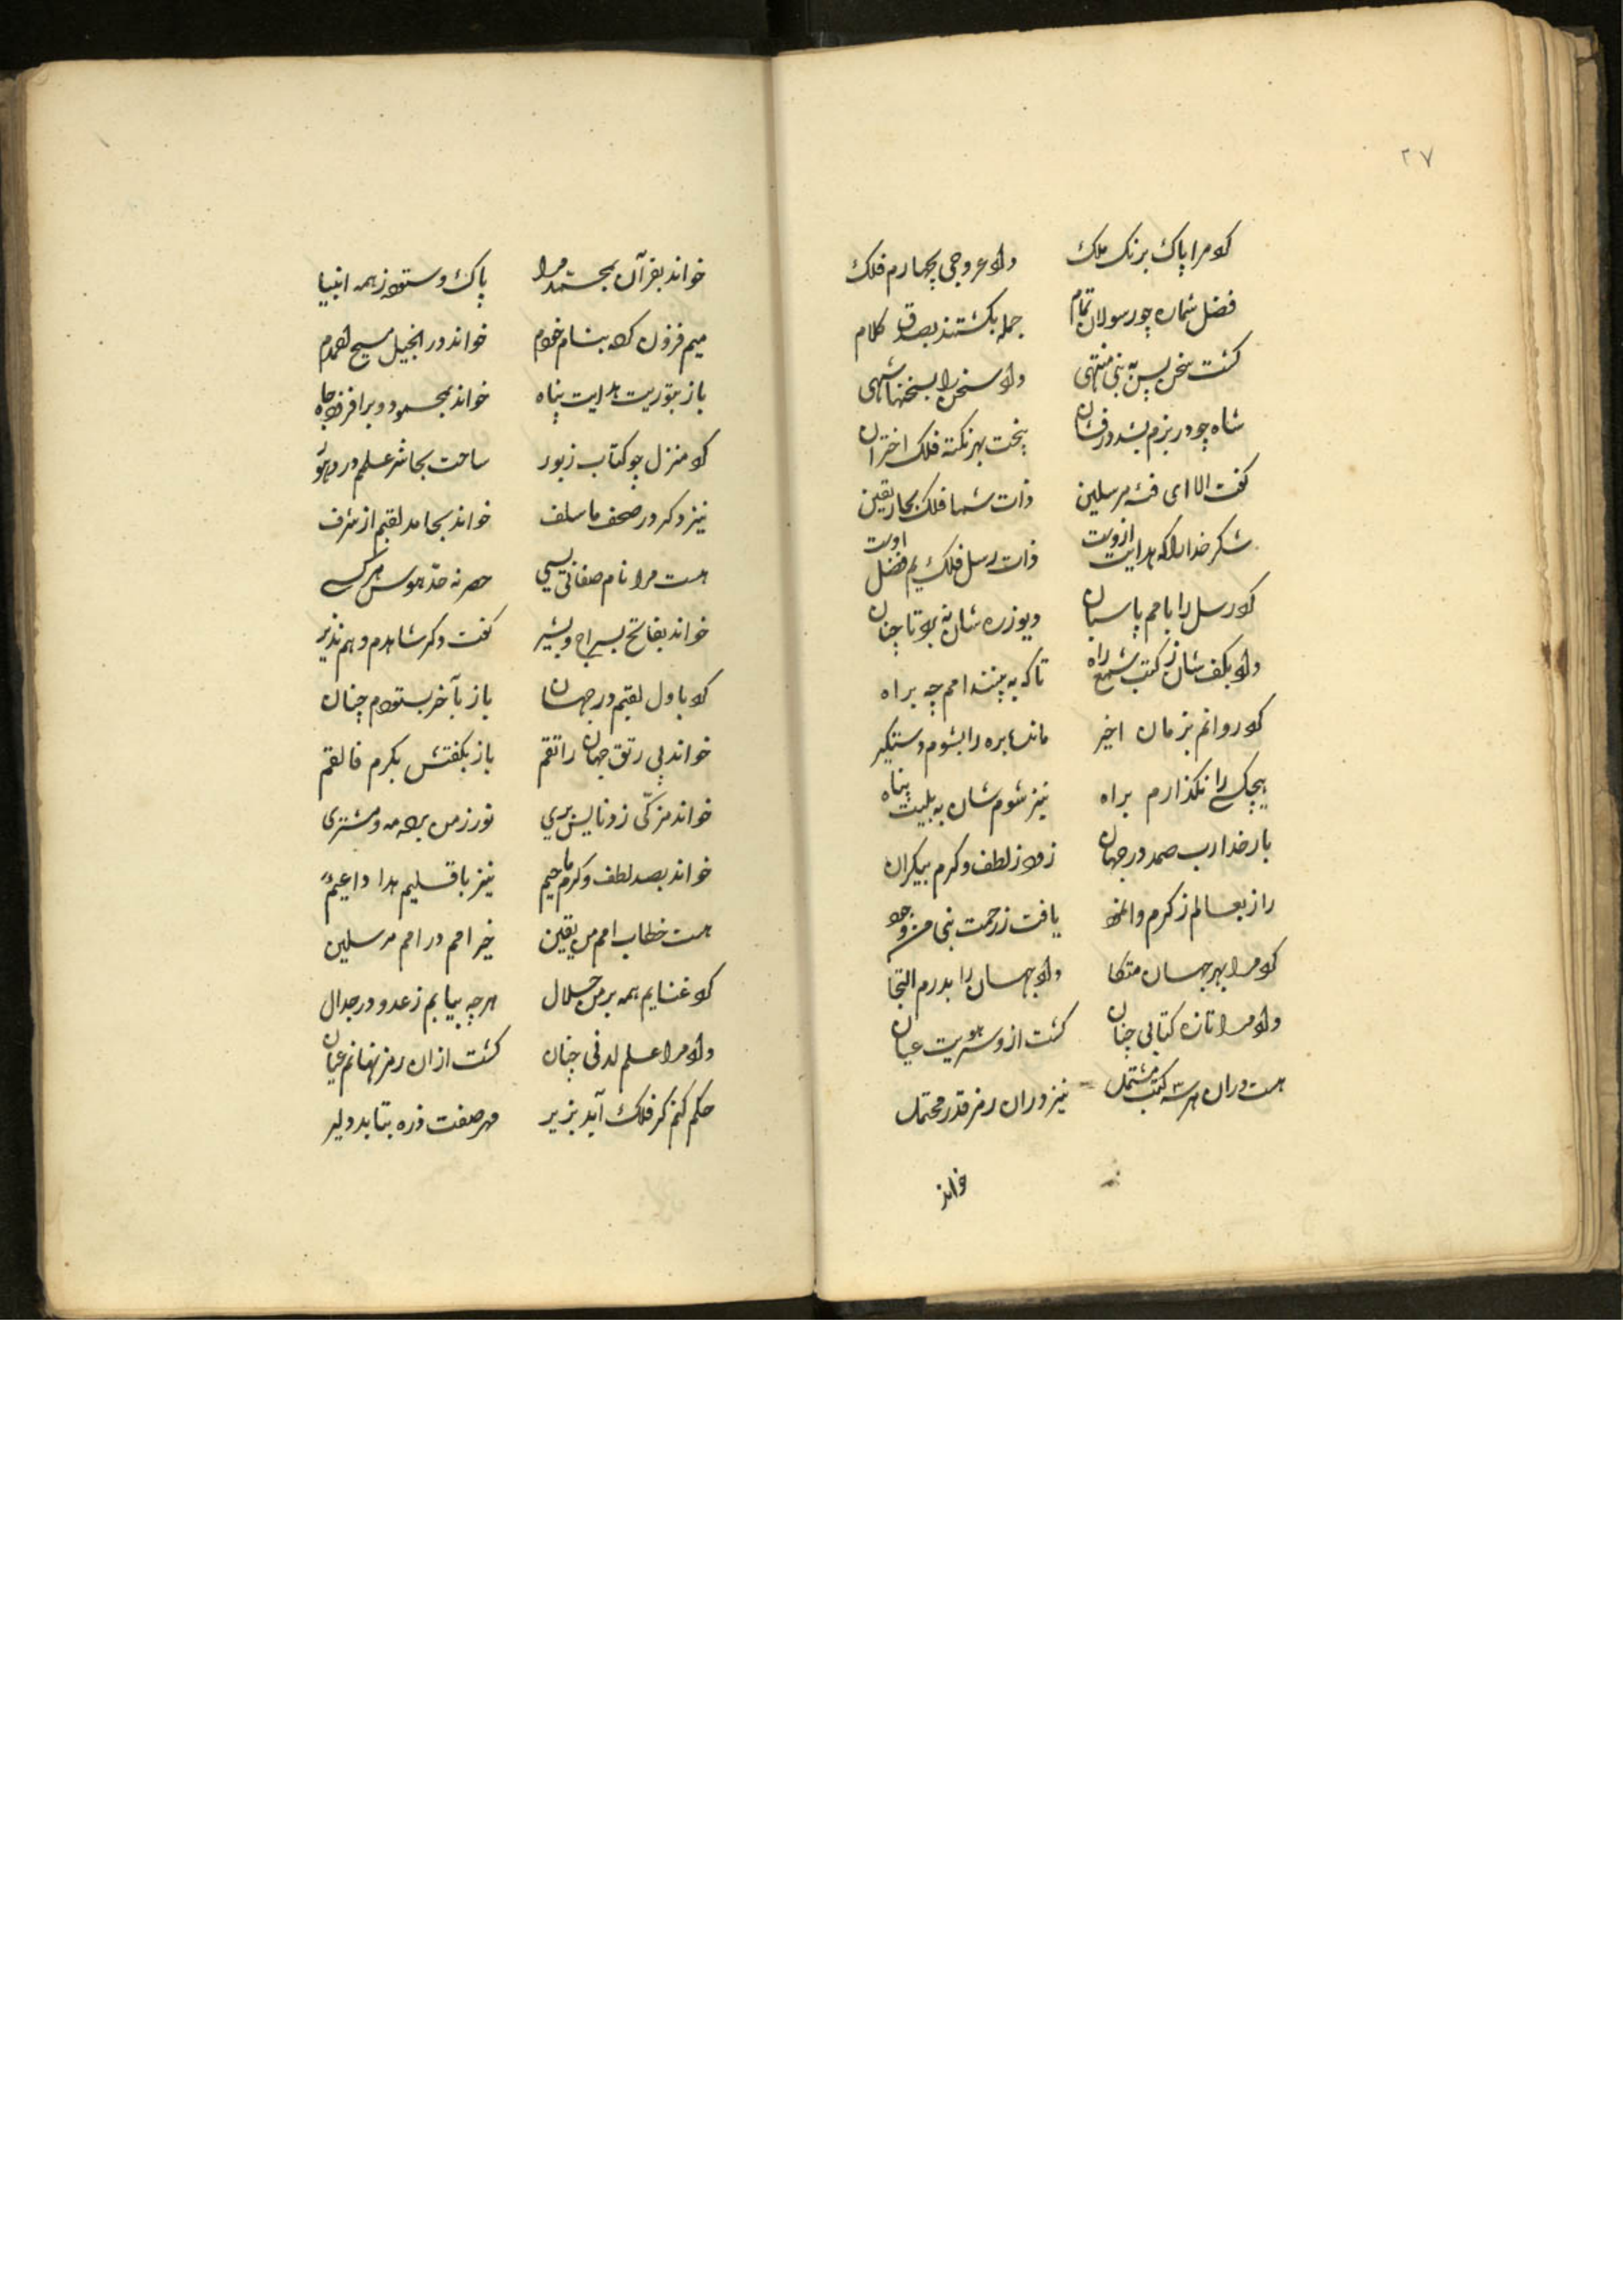 ۲۷
کرد مرا پاک برنک ملک داد عروجی بچهارم فلک
فضل شمارۀ چو رسولان تمام جمله بگشتند بصدق کلام
گشت سخن پس به نبی منتهی داد سخن را بسخنها شهی
شاه چو در بزم بشد درفشان پخت بهر نکته فلک اختران
گفت الا ای فئه مرسلین ذات شما فلک بحار یقین
شکر خدا را که هدایت ازوست ذات رسل فلک یم فضل اوست
کرد رسل را بامم پاسبان دیو زره شان نه برد تا چنان
داد بکف شان ز کتب شمع راه تا که به بینند امم چه براه
کرد روانم بزمان اخیر مانده بره را بشوم دستگیر
هیچ کسی را نگذارم براه نیز شوم شان به بلیت پناه
بار خدا رب صمد در جهان زد ز لطف و کرم بیکران
راز بعالم ز کرم وانمود یافت ز رحمت نبی من وجود
کرد مرا بهر جهان متکا داد جهان را بدرم التجا
داد مرا تازه کتابی چنان گشت ازو سر هویت عیان
هست دران هر سه کتب مشتمل نیز دران رمز قدر محتمل
خواند
خواند بقرآن بمحمد مرا پاک و ستوده ز همه انبیا
میم فزون کرد بنام خودم خواند در انجیل مسیح احمدم
باز بتوریت هدایت پناه خواند بمحمود و برافزود جاه
کرد منزل چو کتاب زبور ساخت بحاشر علمم در دهور
نیز دکر در صحف ما سلف خواند بحامد لقبم از شرف
هست مرا نام صفاتی بسی حصر نه حد هوس هر کسی
خواند بفاتح بسراج و بشیر گفت دکر شاهدم و هم نذیر
کرد باول لقبم در جهان باز بآخر بستودم چنان
خواند پی رتق جهان راتقم باز بگفتش بکرم فاتقم
خواند مزکی ز دنایس بری نور ز من برده مه و مشتری
خواند بصد لطف و کرم ماحیم نیز باقلیم هدا داعیم
هست خطاب امم من یقین خیر امم در امم مرسلین
کرد غنایم همه بر من حلال هر چه بیابم ز عدو در جدال
داد مرا علم لدنی چنان گشت ازان رمز نهانم عیان
حکم کنم گر فلک آید بزیر مهر صفت ذره بتابد دلیر